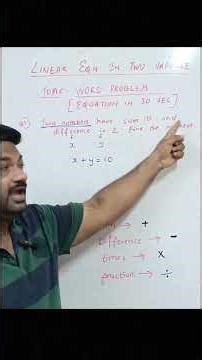 LINEAR EQN IN TWO VARIABLE
TOPIC - WORD PROBLEM
[EQUATION IN 30 SEC]
Q1) Two numbers have sum 10 and
difference is 2. Find the
x y
x + y = 10
sum → +
Difference → -
times → ×
fraction → ÷